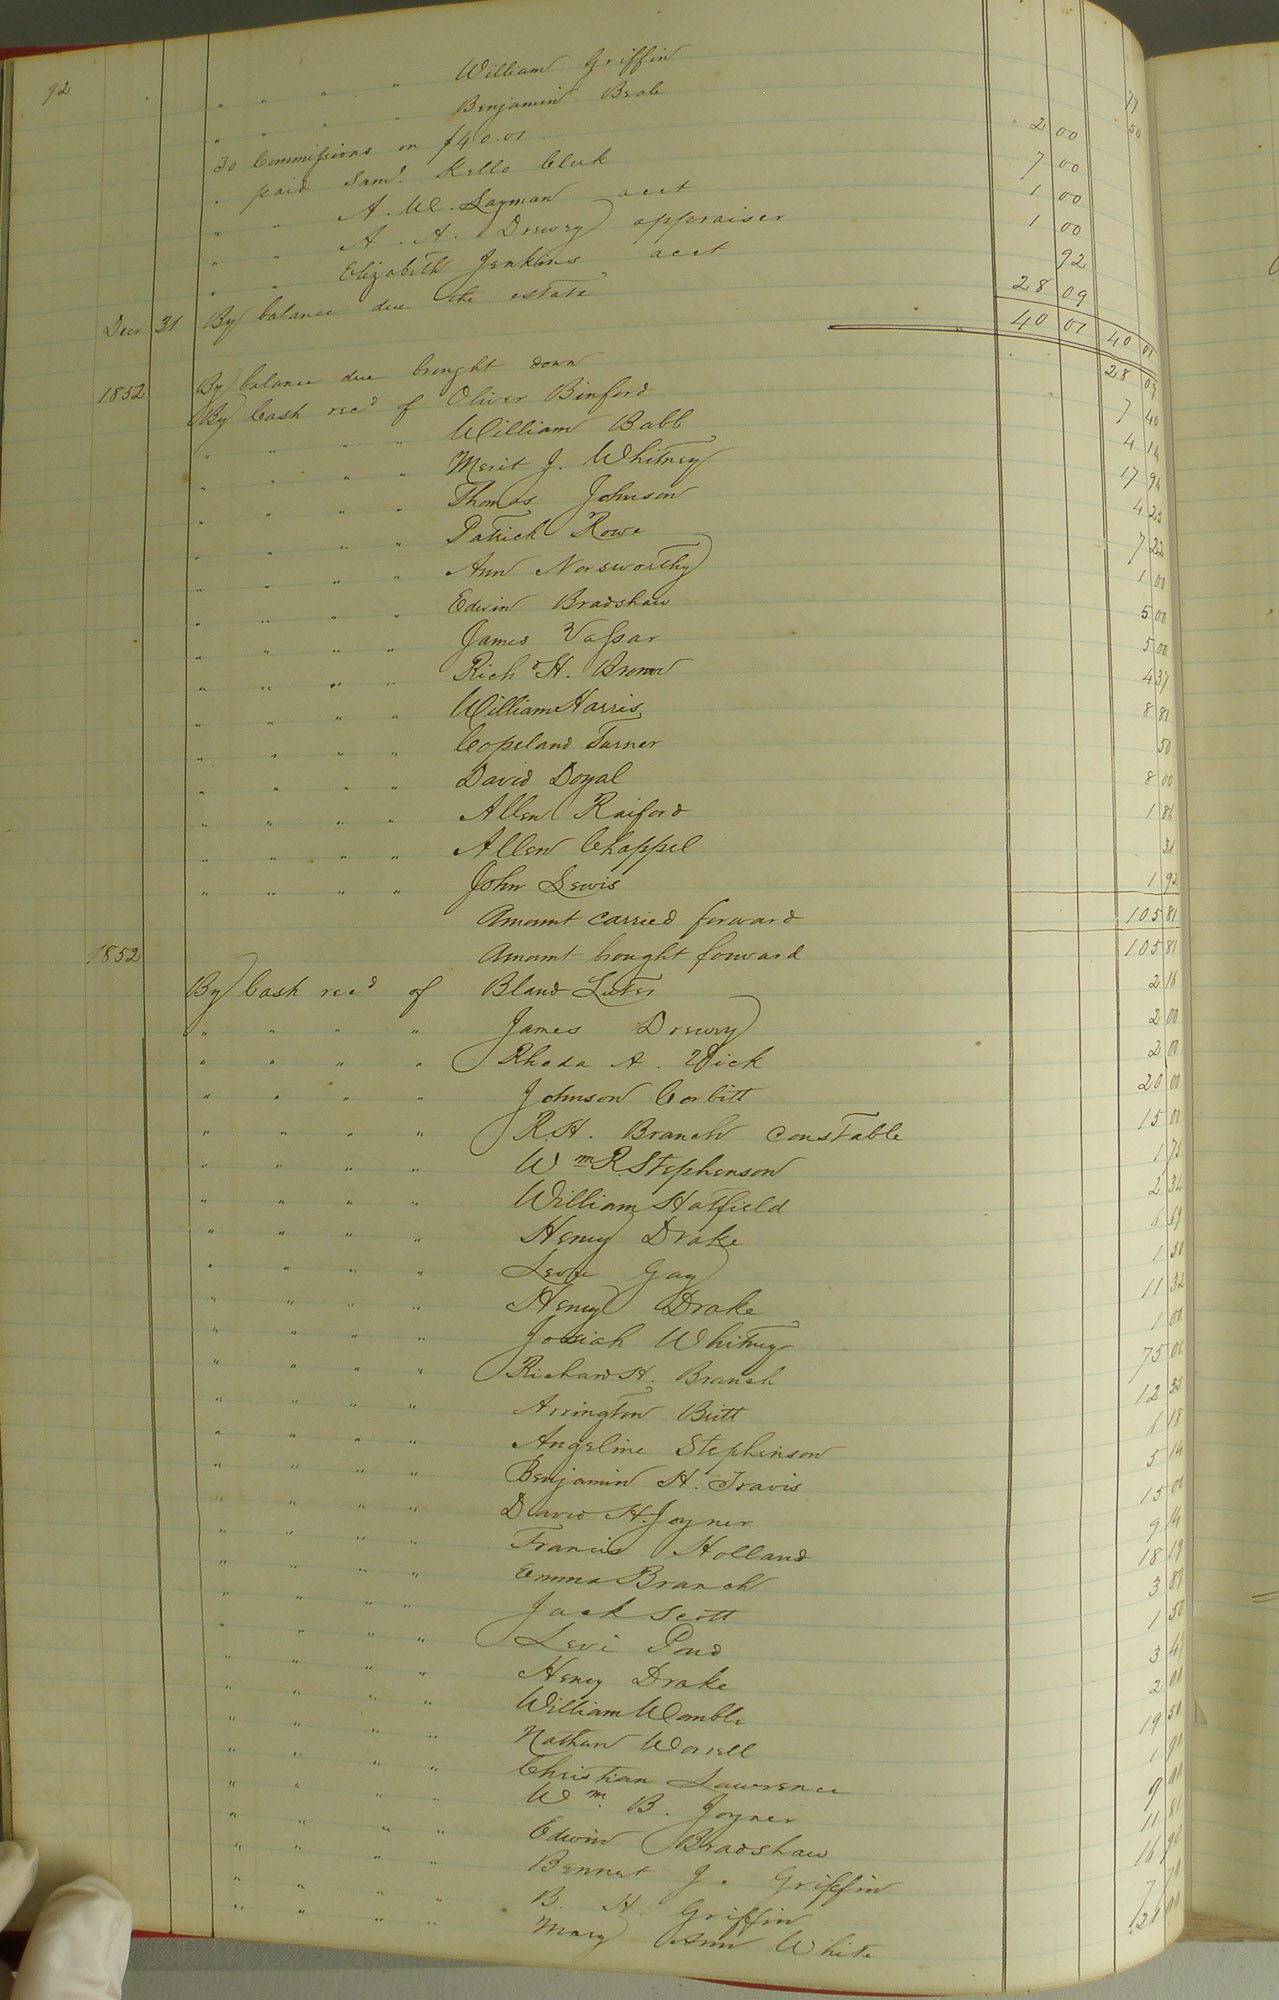 92
" " " " William Griffin 77
" " " " Benjamin Beale 50
To Commissions on $40.01 2 00
" paid Saml. Kello Clerk 7 00
" " A. W. Layman acct 1 00
" " A. A. Drewry appraiser 1 00
" " Elizabeth Jenkins acct 92
Decr 31 By balance due the estate 28 09
40 01 40 01
1852 By balance due brought down 28 09
By Cash recd of Oliver Binford 7 40
" " " " William Babb 4 14
" " " " Merit J. Whitney 17 94
" " " " Thomas Johnson 4 25
" " " " Patrick Rowe 7 22
" " " " Ann Norsworthy 1 00
" " " " Edwin Bradshaw 5 00
" " " " James Vassar 5 00
" " " " Richd H. Brown 4 37
" " " " William Harris 8 81
" " " " Copeland Turner 50
" " " " David Doyal 8 00
" " " " Allen Raiford 1 86
" " " " Allen Chappel 31
" " " " John Lewis 1 92
Amount carried forward 105 81
1852 Amount brought forward 105 81
By Cash recd of Bland Luter 2 16
" " " " James Drewry 2 00
" " " " Rhoda A. Vick 2 00
" " " " Johnson Corbitt 20 00
" " " " R. H. Branch constable 15 00
" " " " Wm R. Stephenson 1 75
" " " " William Hatfield 2 34
" " " " Henry Drake 69
" " " " Levi Gay 1 50
" " " " Henry Drake 11 32
" " " " Josiah Whitney 1 00
" " " " Richard H. Branch 75 00
" " " " Arrington Britt 12 35
" " " " Angeline Stephenson 18
" " " " Benjamin H. Travis 5 14
" " " " David H. Joyner 15 00
" " " " Francis Holland 9 14
" " " " Emma Branch 18 19
" " " " Jack Scott 3 87
" " " " Levi Pond 1 50
" " " " Henry Drake 3 47
" " " " William Womble 2 00
" " " " Nathan Worrell 19 50
" " " " Christian Lawrence 1 90
" " " " Wm. B. Joyner 9 00
" " " " Edwin Bradshaw 11 81
" " " " Bennet J. Griffin 16 90
" " " " B. H. Griffin 7 70
" " " " Mary Ann White